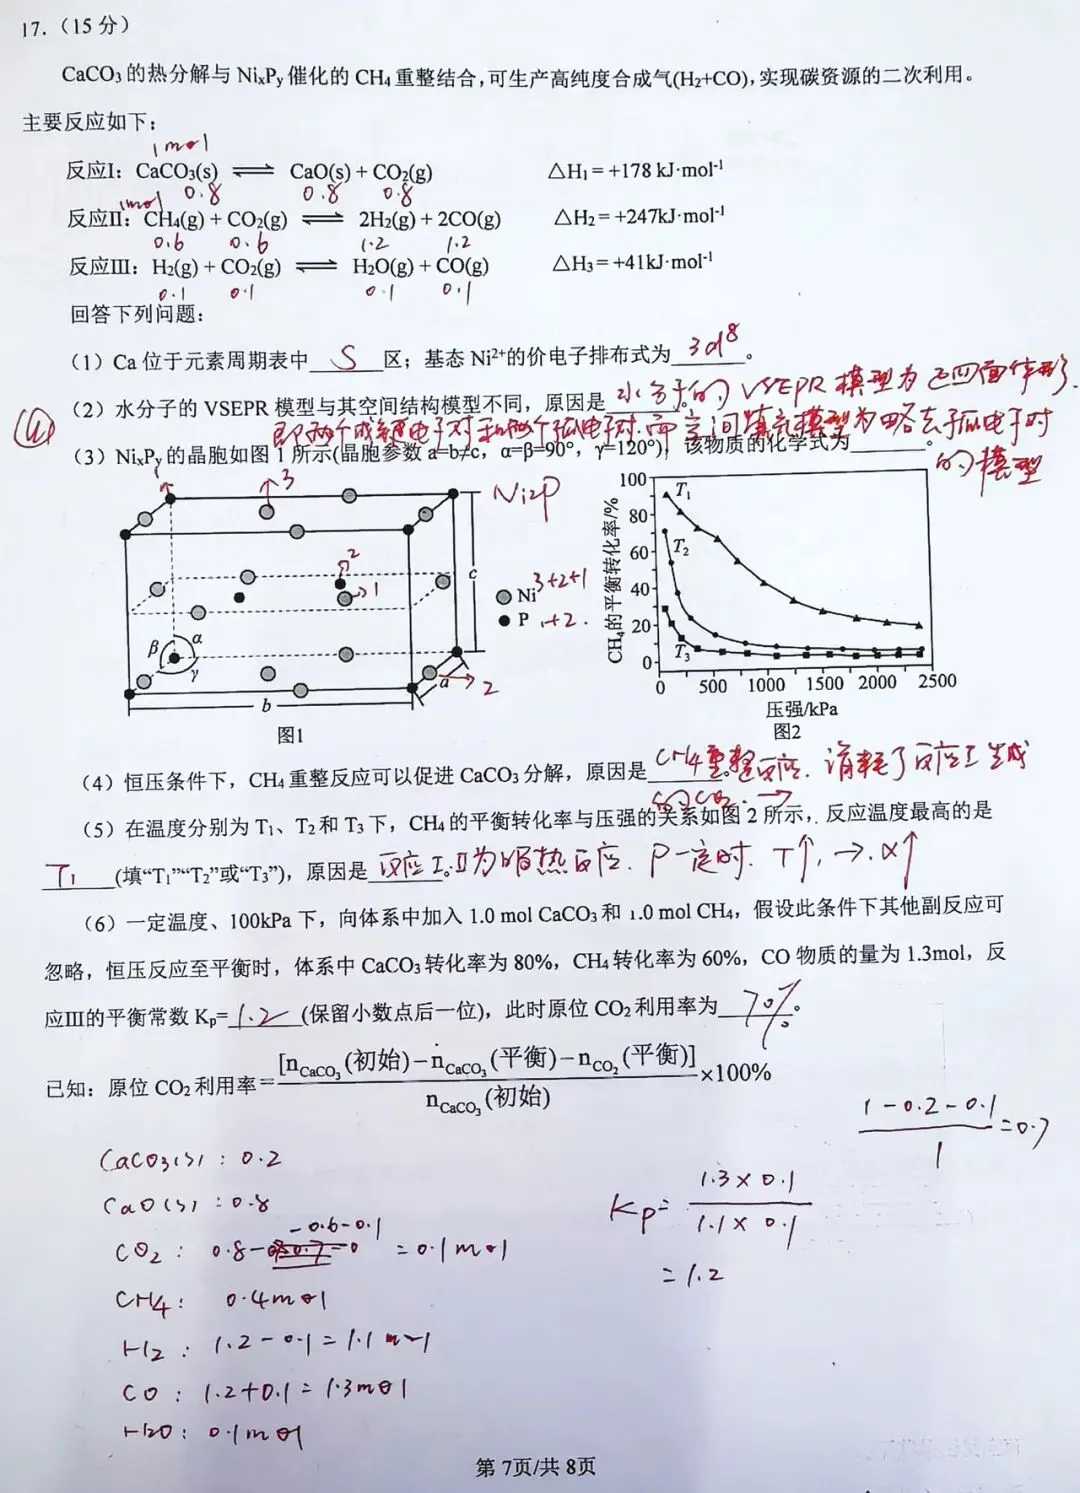 17.（15 分）
CaCO₃ 的热分解与 NiₓPᵧ 催化的 CH₄ 重整结合，可生产高纯度合成气(H₂+CO)，实现碳资源的二次利用。
主要反应如下：
1mol
反应I：CaCO₃(s) ⇌ CaO(s) + CO₂(g) △H₁ = +178 kJ·mol⁻¹
0.8 0.8 0.8
1mol
反应II：CH₄(g) + CO₂(g) ⇌ 2H₂(g) + 2CO(g) △H₂ = +247kJ·mol⁻¹
0.6 0.6 1.2 1.2
反应III：H₂(g) + CO₂(g) ⇌ H₂O(g) + CO(g) △H₃ = +41kJ·mol⁻¹
0.1 0.1 0.1 0.1
回答下列问题：
（1）Ca 位于元素周期表中 S 区；基态 Ni²⁺的价电子排布式为 3d⁸ 。
（2）水分子的 VSEPR 模型与其空间结构模型不同，原因是 水分子的 VSEPR 模型为正四面体形.
即两个成键电子对和两个孤电子对.而空间填充模型为略去孤电子对
的模型
（3）NiₓPᵧ 的晶胞如图 1 所示(晶胞参数 a=b≠c，α=β=90°，γ=120°)，该物质的化学式为 。
Ni2P
1 3 2 1 2
β α γ a b c
Ni 3+2+1
P 1+2.
图1
CH₄的平衡转化率/%
100 80 60 40 20 0
T₁
T₂
T₃
0 500 1000 1500 2000 2500
压强/kPa
图2
（4）恒压条件下，CH₄ 重整反应可以促进 CaCO₃ 分解，原因是 CH4重整反应.消耗了反应I生成
的CO2. → 。
（5）在温度分别为 T₁、T₂ 和 T₃ 下，CH₄ 的平衡转化率与压强的关系如图 2 所示，反应温度最高的是
T₁ (填“T₁”“T₂”或“T₃”)，原因是 反应I.II为吸热反应. P一定时. T↑, →. α↑
（6）一定温度、100kPa 下，向体系中加入 1.0 mol CaCO₃ 和 1.0 mol CH₄，假设此条件下其他副反应可
忽略，恒压反应至平衡时，体系中 CaCO₃ 转化率为 80%，CH₄ 转化率为 60%，CO 物质的量为 1.3mol，反
应III的平衡常数 Kₚ= 1.2 (保留小数点后一位)，此时原位 CO₂ 利用率为 70% 。
已知：原位 CO₂ 利用率 = [n_CaCO₃(初始)−n_CaCO₃(平衡)−n_CO₂(平衡)] / n_CaCO₃(初始) ×100%
(1-0.2-0.1)/1 =0.7
CaCO3(s) : 0.2
CaO(s) : 0.8
CO2 : 0.8-0.6-0.1 = 0.1mol
CH4 : 0.4mol
H2 : 1.2-0.1=1.1mol
CO : 1.2+0.1=1.3mol
H2O : 0.1mol
Kp= (1.3×0.1)/(1.1×0.1)
=1.2
第 7页/共 8页